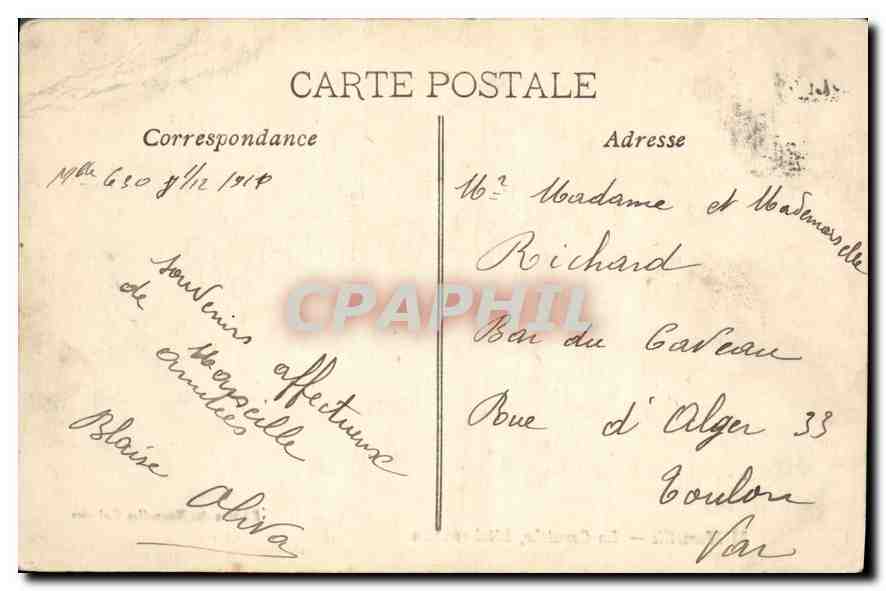 CARTE POSTALE
Correspondance
Adresse
Mlle 630
souvenirs affectueux
de Marseille
amitiés
Blaise
Oliva
Mr Madame et Mademoiselle
Richard
Bar du Caveau
Rue d'Alger 33
Toulon
Var
CPAPHIL